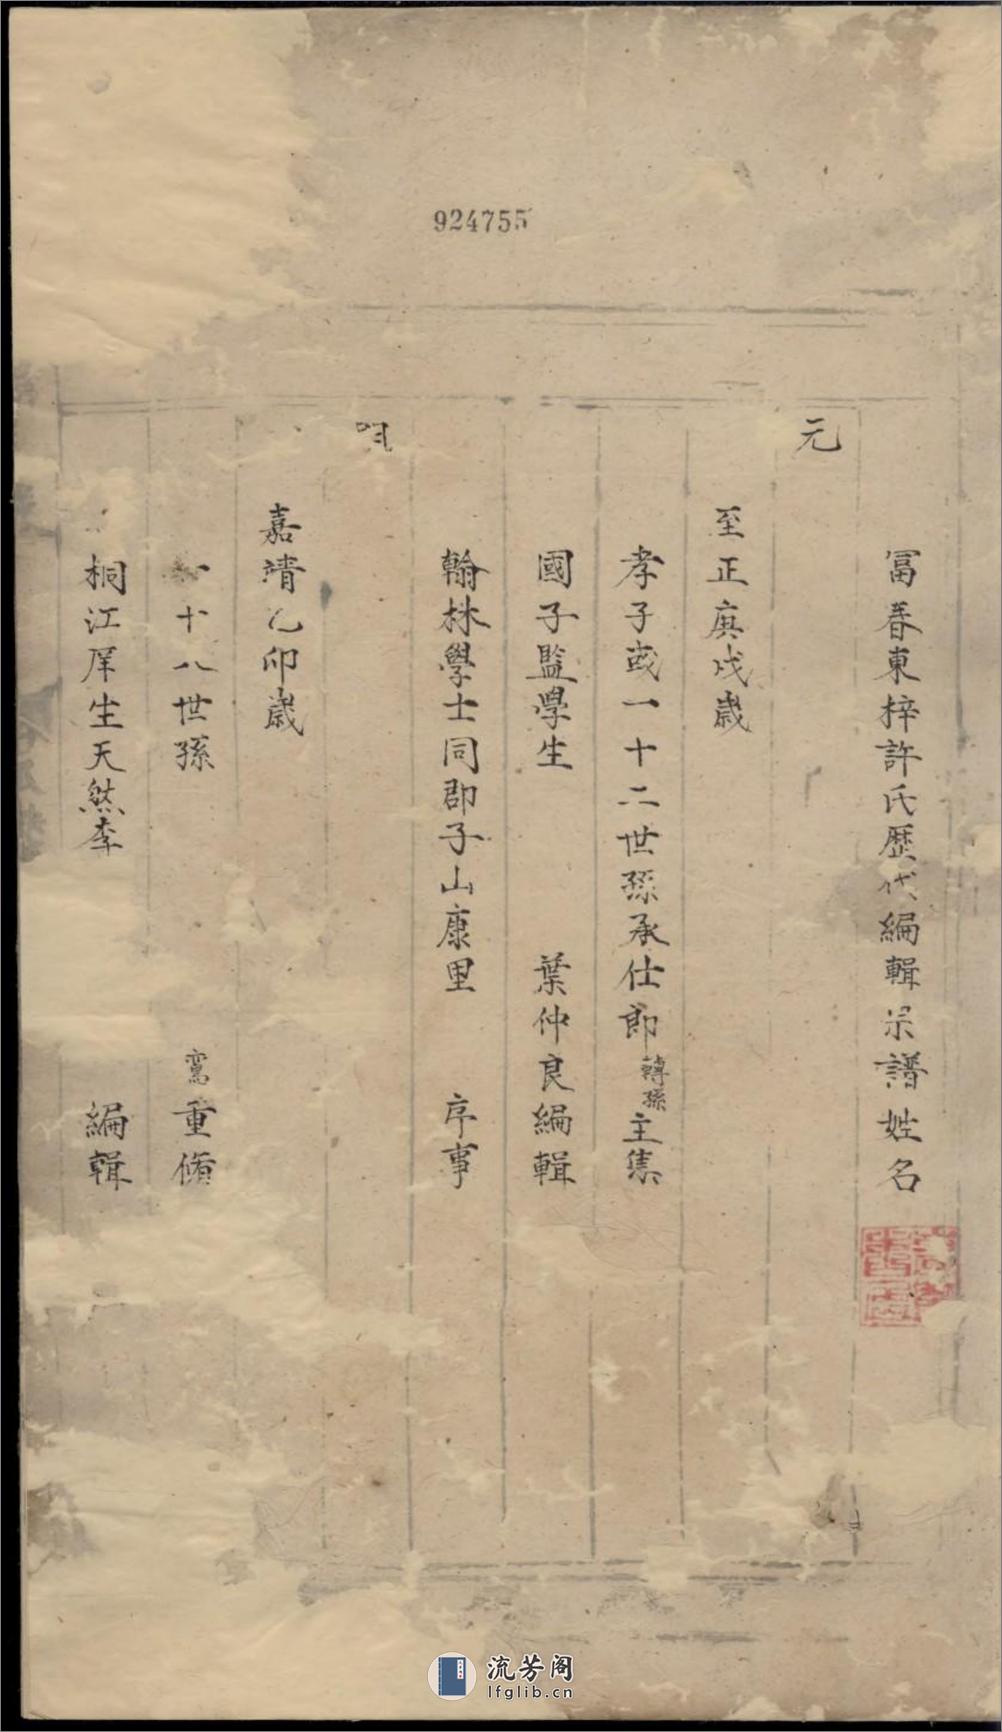 924755
冨春東梓許氏歷代編輯宗譜姓名
元
至正庚戌歲
孝子彧一十二世孫承仕郎轉孫主集
國子監學生 葉仲良編輯
翰林學士同郡子山康里 序事
明
嘉靖乙卯歲
一十八世孫 鸞重脩
桐江庠生天然李 編輯
流芳阁
lfglib.cn